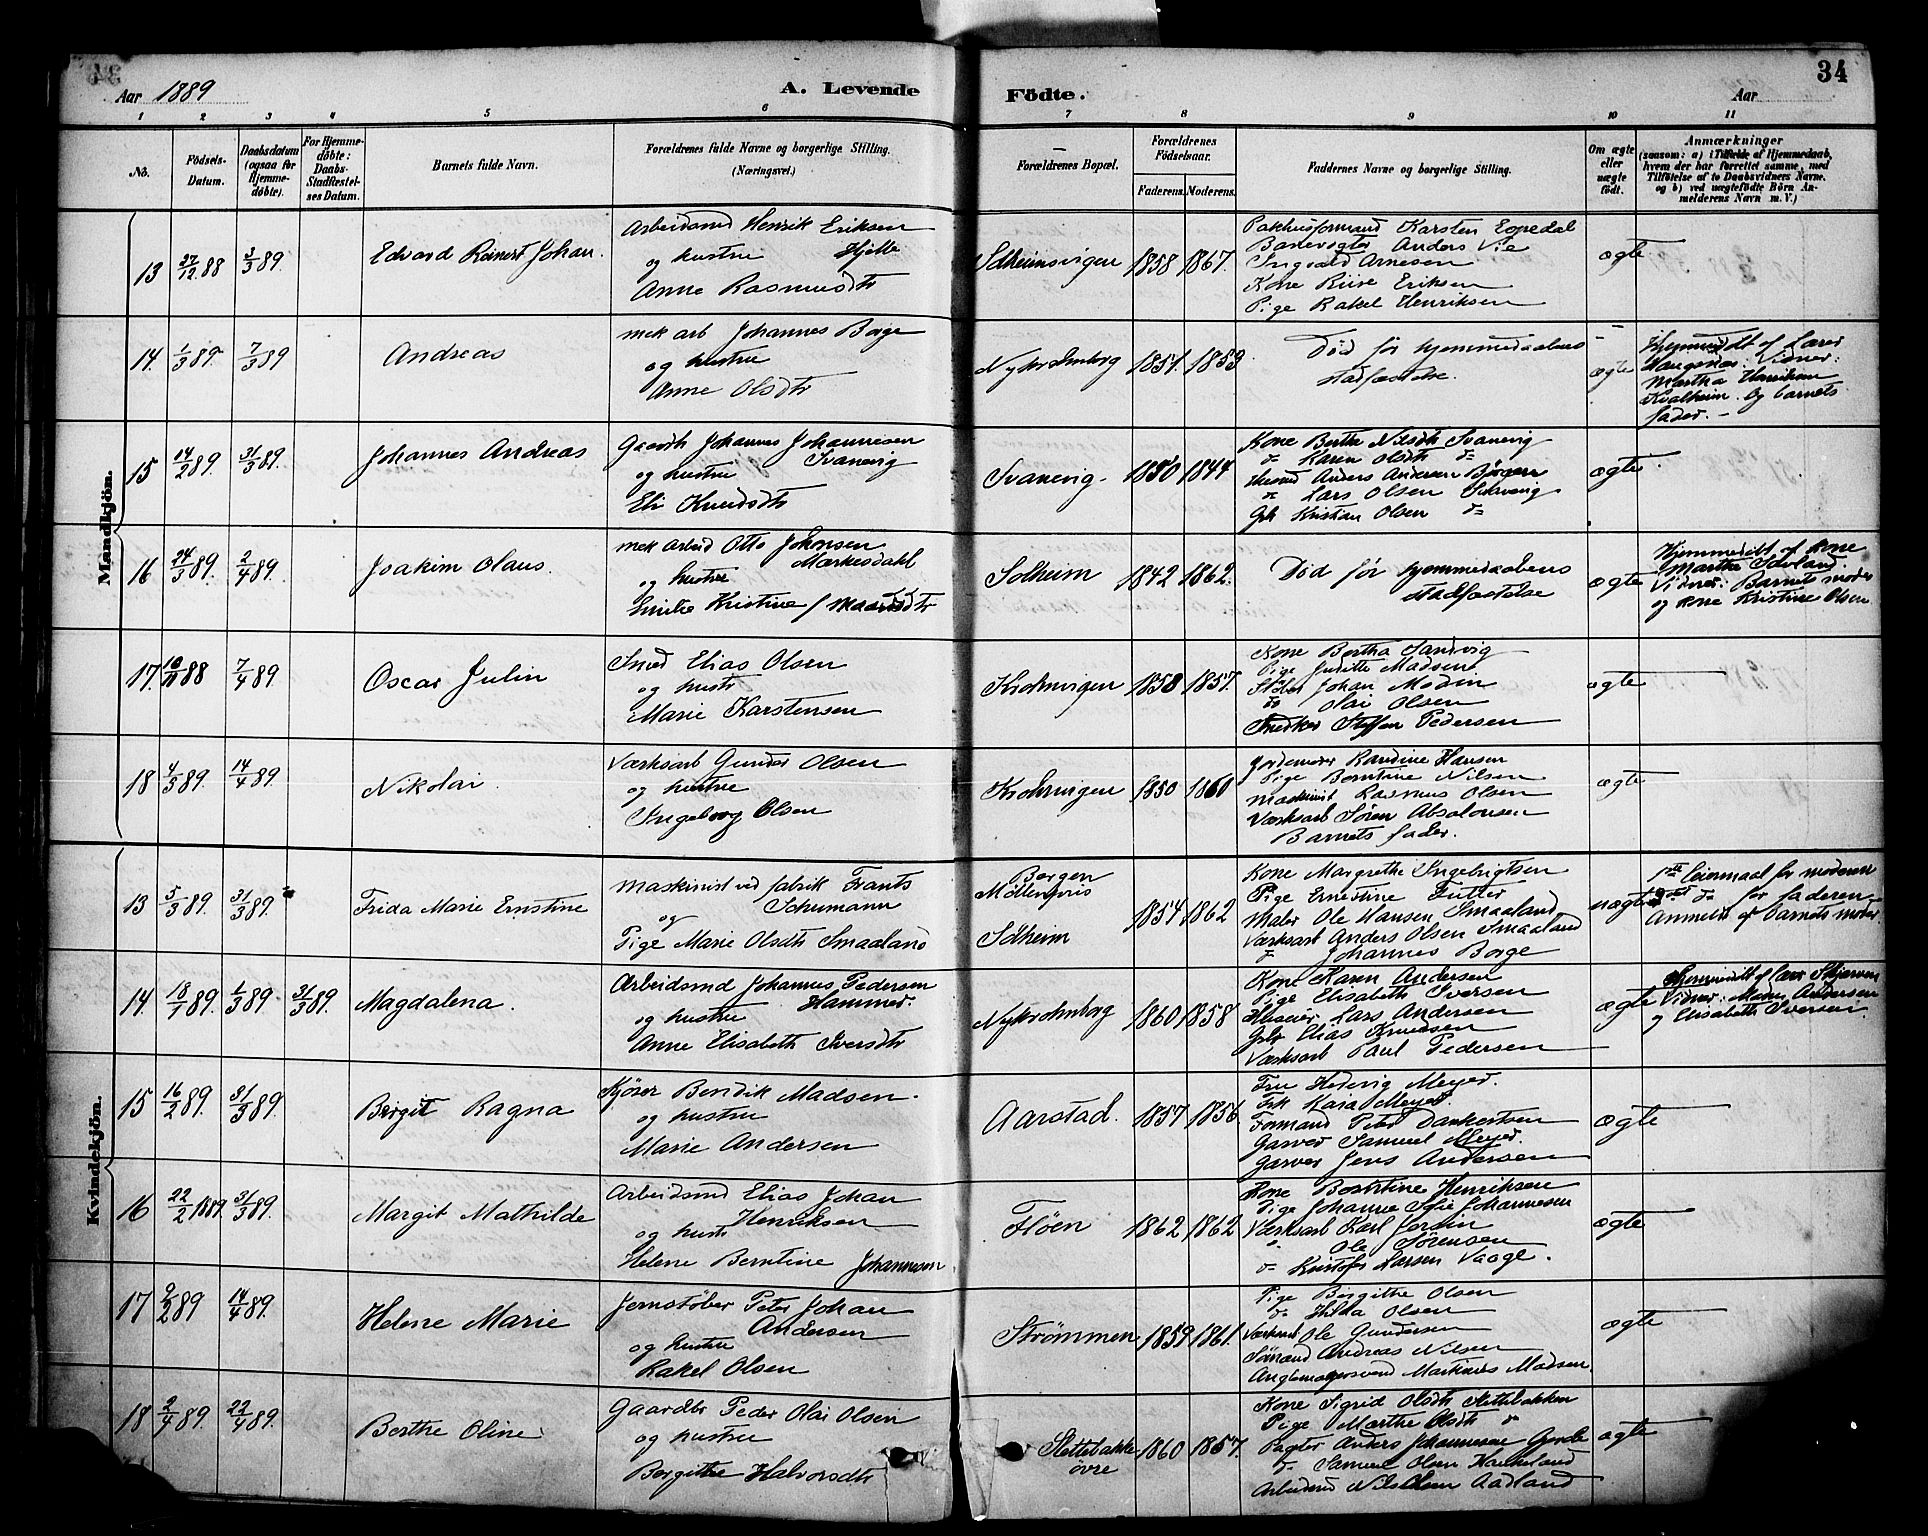 Aar 1889
A. Levende
Födte.
34
Aar
1 2 3 4 5 6 7 8 9 10 11
No.
Födsels-Datum.
Daabsdatum (ogsaa for Hjemmedöbte).
For Hjemmedöbte: Daabs-Stadfæstelses Datum.
Barnets fulde Navn.
Forældrenes fulde Navne og borgerlige Stilling.
(Næringsvei.)
Forældrenes Bopæl.
Forældrenes Födselsaar.
Faderens. Moderens.
Faddernes Navne og borgerlige Stilling.
Om ægte eller uægte födt.
Anmærkninger
(saasom: a) i Tilfælde af Hjemmedaab,
hvem der har forrettet samme, med
Tilföielse af to Daabsvidners Navne,
og b) ved uægtefödte Börn An-
melderens Navn m. V.)
Mandkjön.
13 27/12 88 3/3 89. Edvard Reinert Johan.
Arbeidsmd Henrik Eriksen
Hjelle
og hustru
Anne Rasmusdtr
Solheimsvigen 1858 1867.
Pakhusformand Karsten Eopedal
Banevogter Anders Vie
Ingvald Arnesen
Kone Riise Eriksen
Pige Rakel Henriksen
ægte
14. 1/3 89. 7/3 89 Andreas
mek arb Johannes Borge
og hustru
Anne Olsdtr
Nykrohnborg 1851. 1853
Död för hjemmedaabens
stadfæstelse.
ægte
Martha Henriksen
Kvalheim. Og barnets
fader. –
15 14/2 89. 31/3 89. Johannes Andreas
Gaardb Johannes Johannesen
Svanevig
og hustru
Eli Knudsdtr
Svanevig. 1850 1844
Kone Berthe Nilsdtr Svanevig
do Karen Olsdtr do
Husmd Anders Andersen
do Lars Olsen
Gbr Kristian Olsen do
ægte.
16 24/3 89. 2/4 89. Joakim Olaus.
mek Arbeid Otto Johnsen
Markusdahl
og hustru
Kristine
Solheim 1842 1862.
Död för hjemmedaabens
stadfæstelse
ægte
Hjemmedöbt af Kone
Martha
Vidner: Barnets moder
og Kone Kristine Olsen
17. 10/11 88 7/4 89. Oscar Julin
Smed Elias Olsen
og hustr
Marie Karstensen
Krohnvigen 1858 1857.
Kone Bertha Sandvig
Pige Juditte Madsen
Stöber Johan Modin
do Olai Olsen
Snedker Steffen Pedersen
ægte
18 4/3 89. 14/4 89. Nikolai
Værksarb Gunder Olsen
og hustru
Ingeborg Olsen
Krohnvigen 1850 1860
Jordemoder Randine Hansen
Pige Berntine Nilsen
Maskinist Rasmus Olsen
Værksarb Sören Absalonsen
Barnets fader.
ægte
Kvindekjön.
13 5/3 89. 31/3 89. Frida Marie Ernstine
Maskinist ved fabrik Frants
Schumann
og
Pige Marie Olsdtr Smaaland
Bergen
Möllenpris
Solheim
1854 1862
Kone Margrethe Ingebrigtsen
Pige Ernestine Futter
Maler Ole Hansen Smaaland
Værksarb Anders Olsen Smaaland
do Johannes Borge
uægte
1ste leiermaal for moderen
do for faderen
Anmeldt af Barnets moder
14. 18/1 89. 1/3 89 31/3 89. Magdalena.
Arbeidsmd Johannes Pedersen
Hammer.
og hustru
Anne Elisabeth Iversdtr
Nykrohnborg 1860 1858
Kone Karen Andersen
Pige Elisabeth Iversen
Huseier Lars Andersen
Gbr Elias Knudsen
Værksarb Paul Pedersen
ægte
Vidner: Andersen
og Elisabeth Iversen.
15 16/2 89. 31/3 89. Bergit Ragna
Kjörer Bendik Madsen.
og hustru
Marie Andersen
Aarstad. 1857 1856.
Fru Hedevig Meyer.
Frk Kaia Meyer.
Formand Peter Dankertsen
Garver Samuel Meyer.
Garver Jens Andersen
ægte
16 22/2 1889. 31/3 89. Margit Mathilde
Arbeidsmd Elias Johan
Henriksen
og hustr
Helene Berntine Johannesen
Flöen 1862 1862
Kone Berntine Henriksen
Pige Johanne Sofie Johannesen
Værksarb Karl
do Ole Sörensen
do Kristofer Larsen Vaage.
ægte
17 2/2 89 14/4 89. Helene Marie
Jernstöber Peter Johan
Andersen
og hustru
Rakel Olsen
Strömmen 1859 1861.
Pige Bergithe Olsen
do Hilda Olsen
Værksarb Ole Gundersen
Sömand Andreas Nilsen
Anglemagersvend Martinus Madsen
ægte
18 2/4 89. 22/4 89. Berthe Oline
Gaardbr Peder Olai Olsen
og hustru
Bergithe Halvorsdtr
Slettebakke
övre
1860 1857.
Kone Sigrid Olsdtr Slettebakken
Pige Marthe Olsdtr do
Pagter Anders Johannesen
do Samuel Olsen Haukeland
Arbeidsmd Nils Aadland
ægte